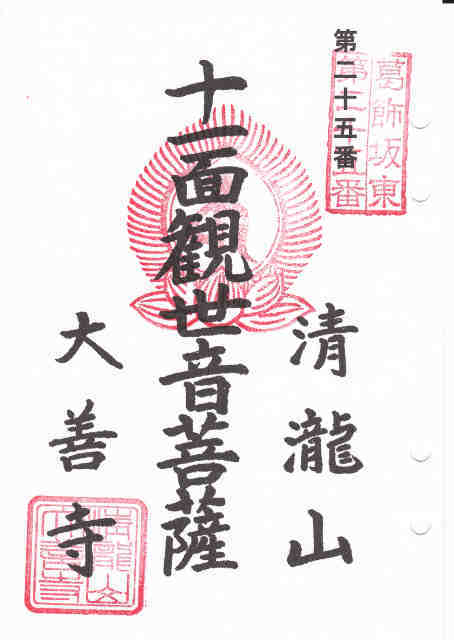 第二十五番
葛飾坂東
第二十五番
清瀧山
十一面観世音菩薩
大善寺
清瀧山
大善寺